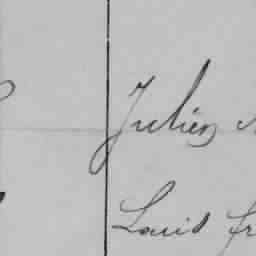 Julien
Louis fr